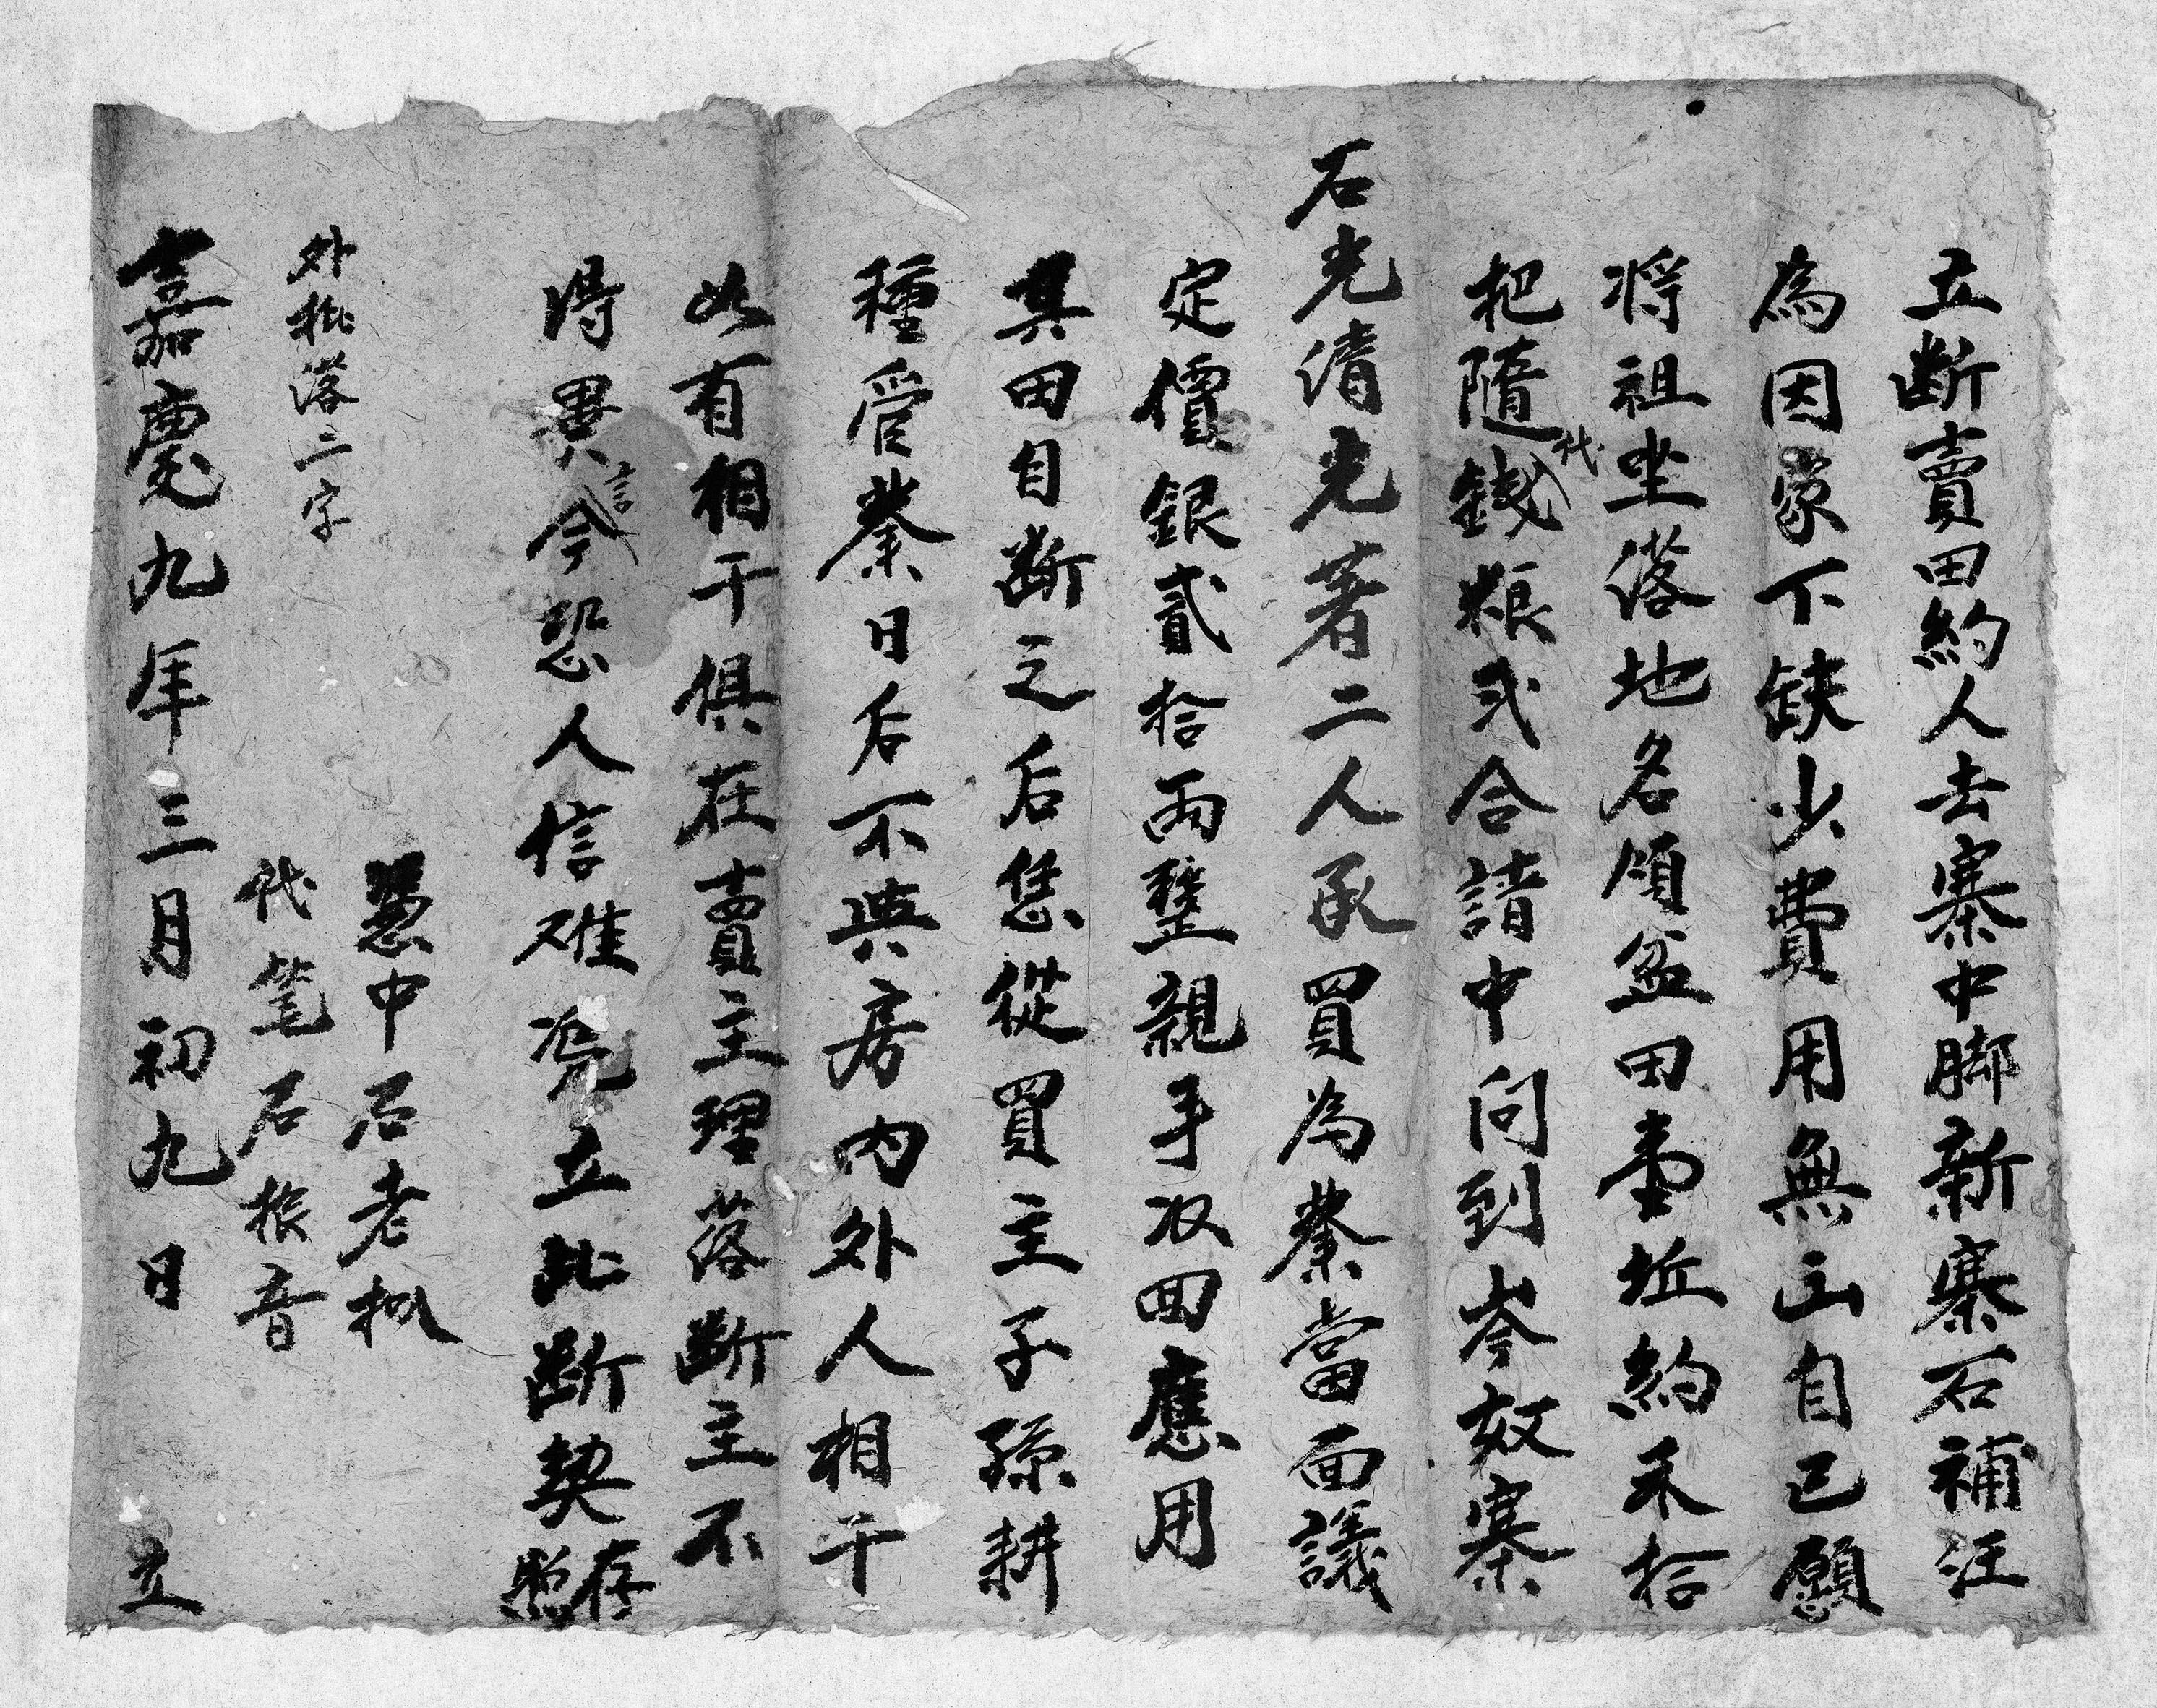 立断賣田約人去寨中脚新寨石補汪
為因家下缺少費用無出自己願
将祖坐落地名傾盆田壹坵約禾拾
把隨代錢粮弍合請中问到岑奴寨
石光清光著二人承買為業當面議
定價銀貳拾両整親手収回應用
其田自断之后恁從買主子孫耕
種管業日后不與房内外人相干
如有相干俱在賣主理落断主不
得異言今恐人信难凭立此断契存照
憑中石老
外批落二字
代笔石振音
嘉慶九年三月初九日立